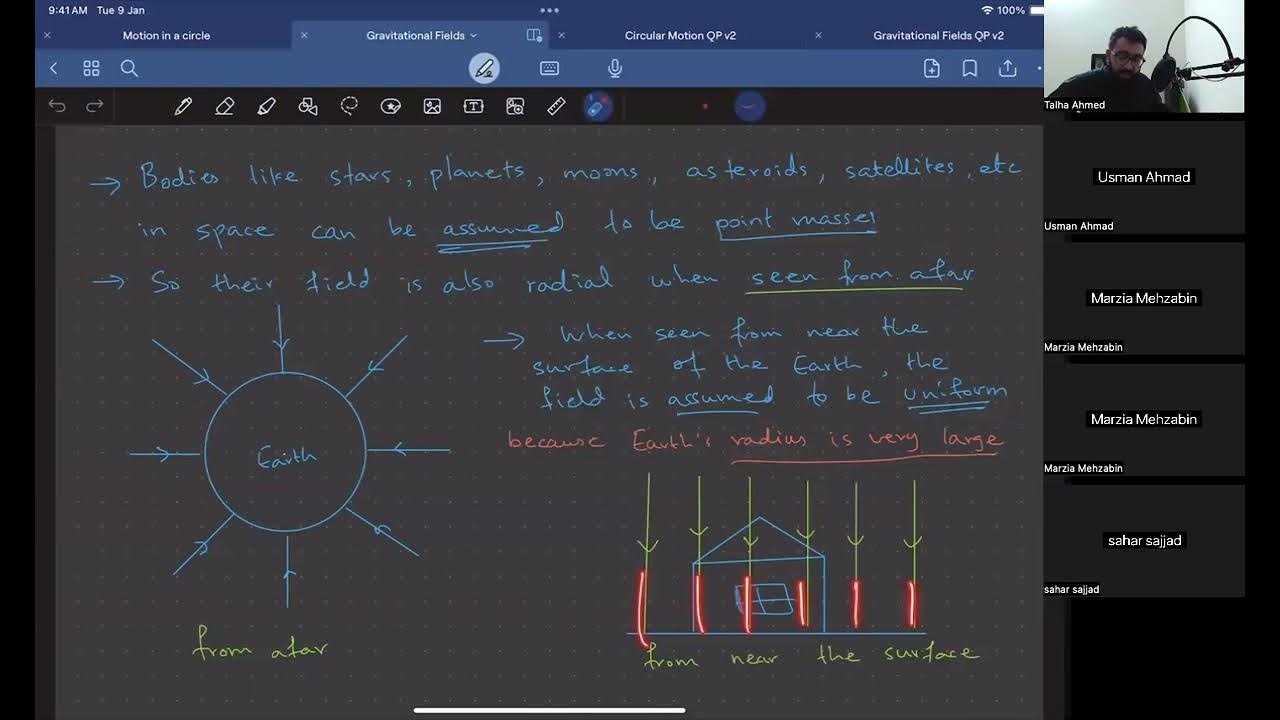 9:41 AM Tue 9 Jan
100%
Motion in a circle
Gravitational Fields
Circular Motion QP v2
Gravitational Fields QP v2
→ Bodies like stars, planets, moons, asteroids, satellites, etc
in space can be assumed to be point masses
→ So their field is also radial when seen from afar
→ When seen from near the
surface of the Earth, the
field is assumed to be uniform
because Earth's radius is very large
Earth
from afar
from near the surface
Talha Ahmed
Usman Ahmad
Usman Ahmad
Marzia Mehzabin
Marzia Mehzabin
Marzia Mehzabin
Marzia Mehzabin
sahar sajjad
sahar sajjad